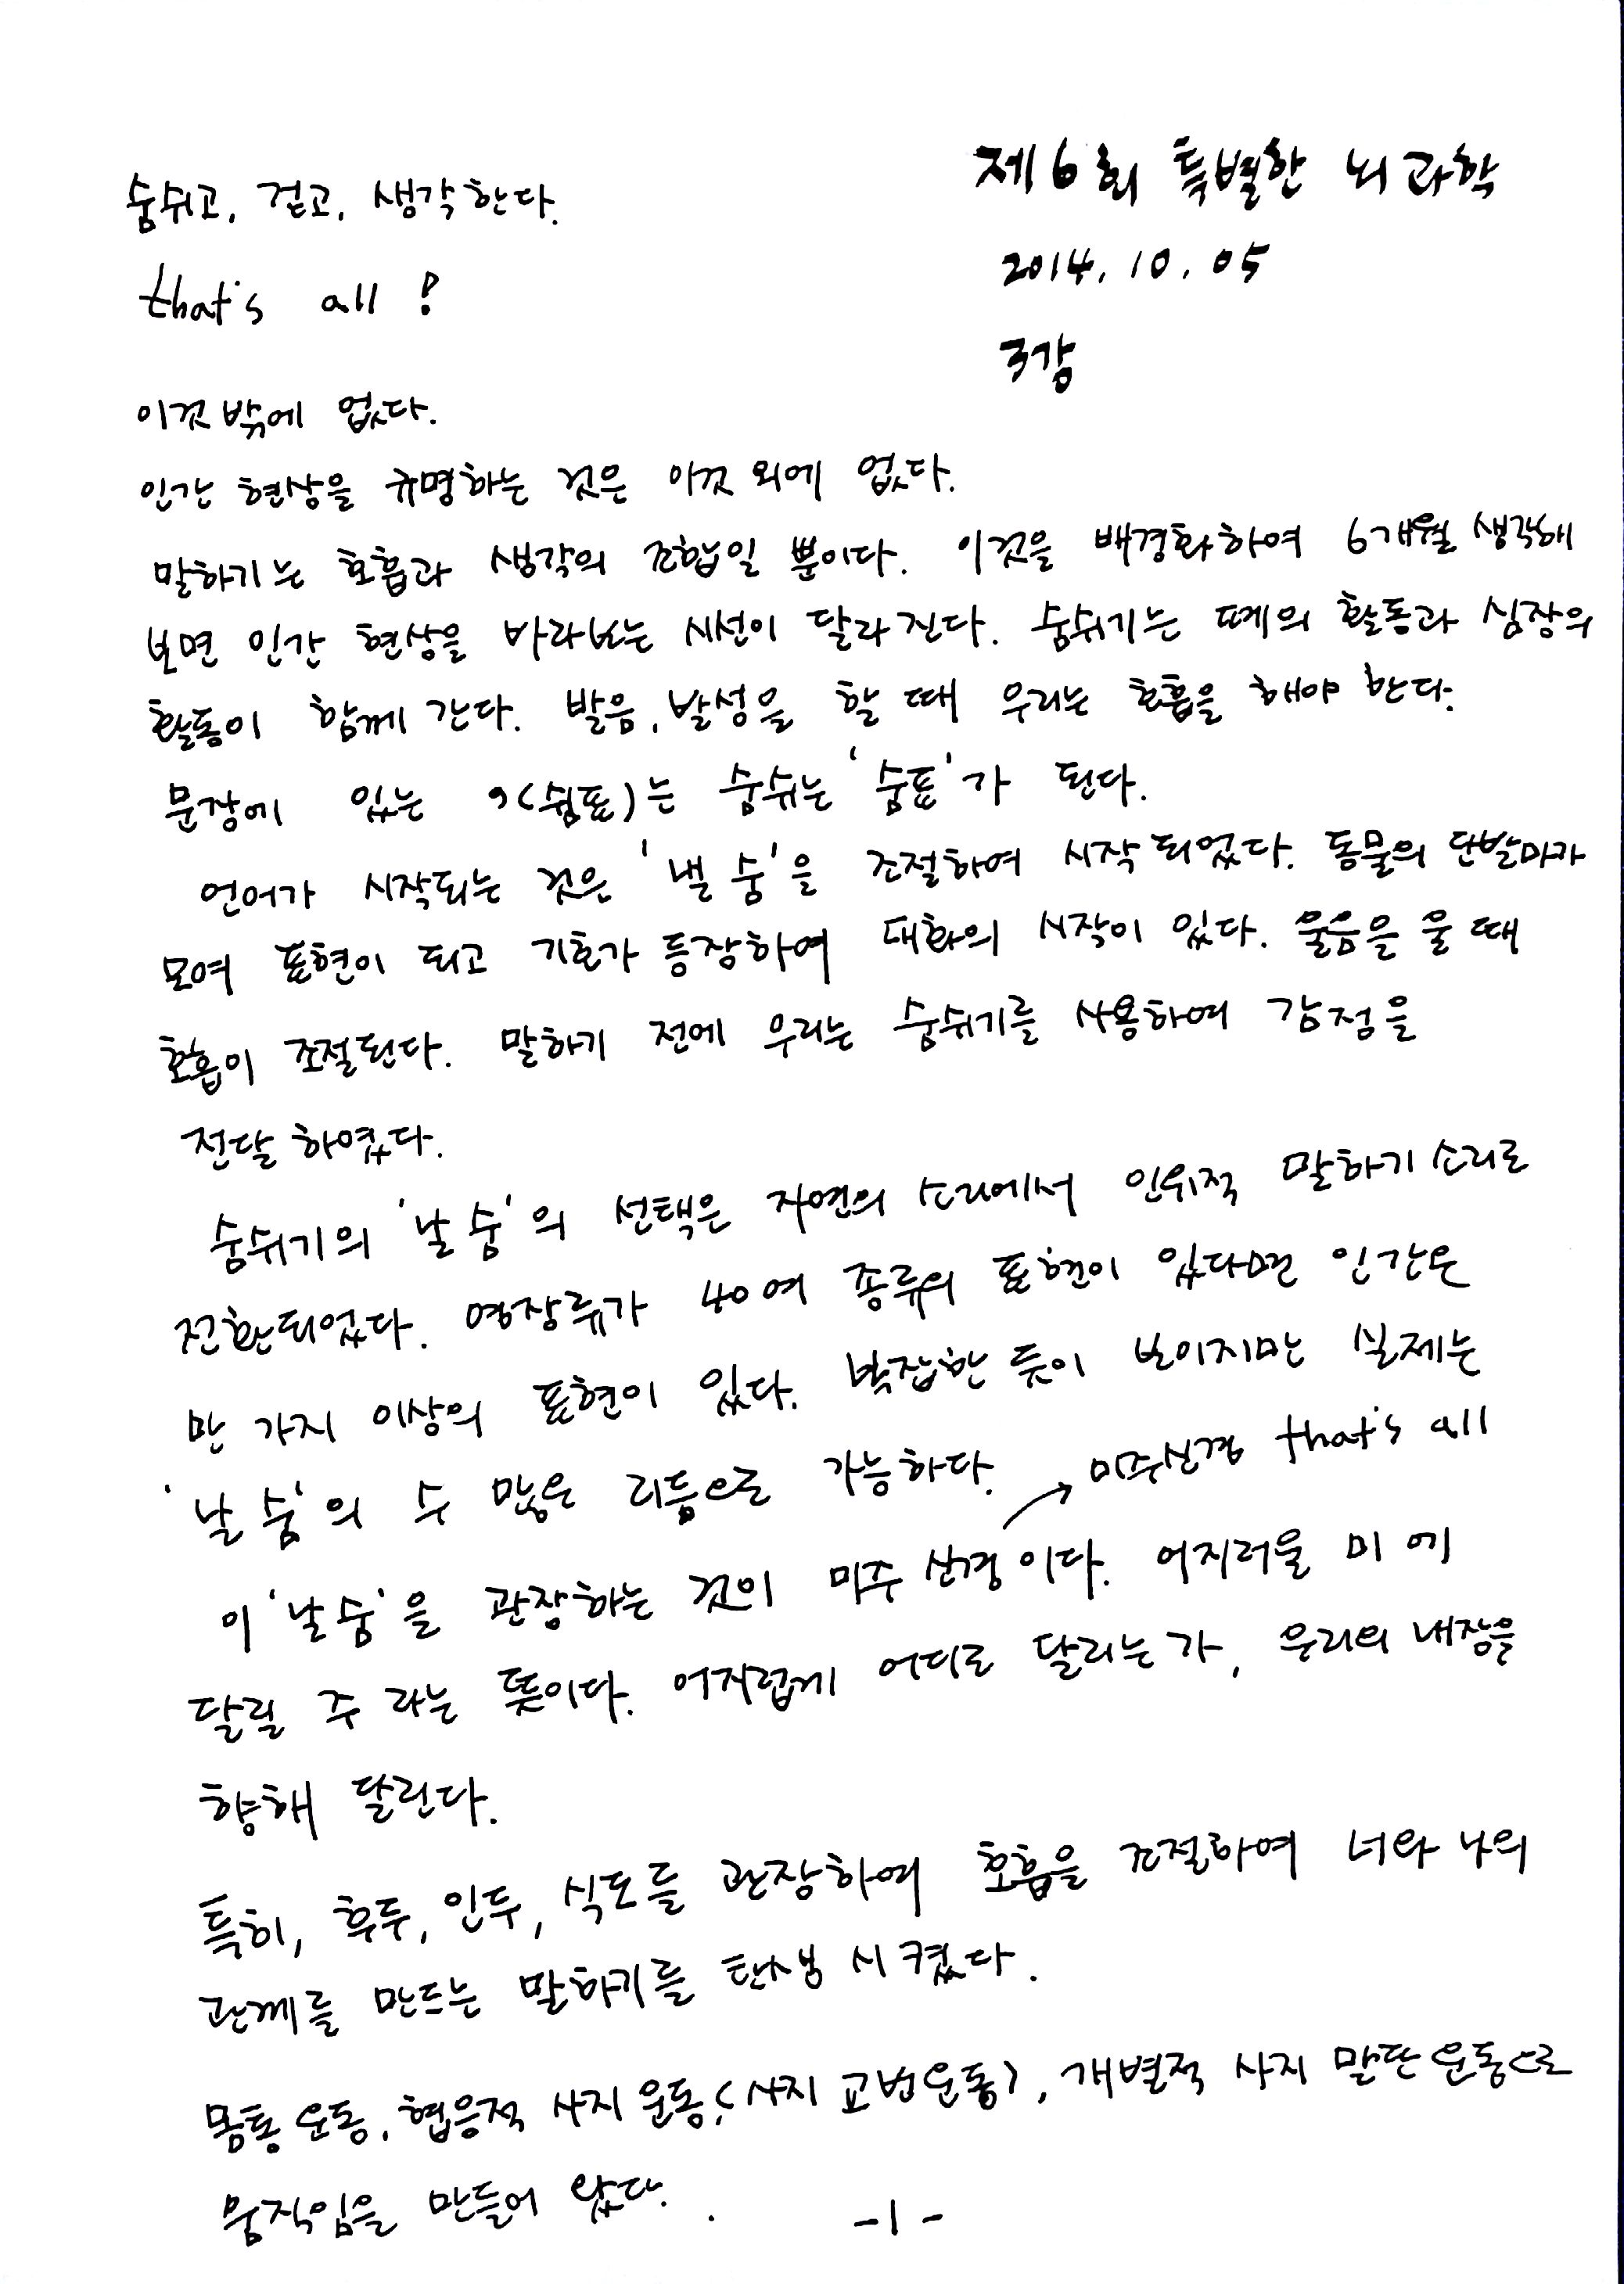 제6회 특별한 뇌과학
2014. 10. 05
3강
숨쉬고, 걷고, 생각한다.
that's all!
이것밖에 없다.
인간 현상을 규명하는 것은 이것 외에 없다.
말하기는 호흡과 생각의 조합일 뿐이다. 이것을 배경화하여 6개월 생각해
보면 인간 현상을 바라보는 시선이 달라진다. 숨쉬기는 폐의 활동과 심장의
활동이 함께 간다. 발음, 발성을 할 때 우리는 호흡을 해야 한다.
문장에 있는 ,(쉼표)는 숨쉬는 '숨표'가 된다.
언어가 시작되는 것은 '낼 숨'을 조절하여 시작되었다. 동물의 단발마가
모여 표현이 되고 기호가 등장하여 대화의 시작이 있다. 울음을 울 때
호흡이 조절된다. 말하기 전에 우리는 숨쉬기를 사용하여 감정을
전달하였다.
숨쉬기의 '날숨'의 선택은 자연의 소리에서 인위적 말하기 소리로
전환되었다. 영장류가 40여 종류의 표현이 있다면 인간은
만 가지 이상의 표현이 있다. 복잡한 듯이 보이지만 실제는
'날숨'의 수 많은 리듬으로 가능하다. → 미주신경 that's all
이 '날숨'을 관장하는 것이 미주 신경이다. 어지러울 미 에
달릴 주 라는 뜻이다. 어지럽게 어디로 달리는가, 우리의 내장을
향해 달린다.
특히, 후두, 인두, 식도를 관장하여 호흡을 조절하여 너와 나의
관계를 만드는 말하기를 탄생 시켰다.
몸통 운동, 협응적 사지 운동,(사지 교번운동), 개별적 사지 말단 운동으로
움직임을 만들어 왔다.
-1-